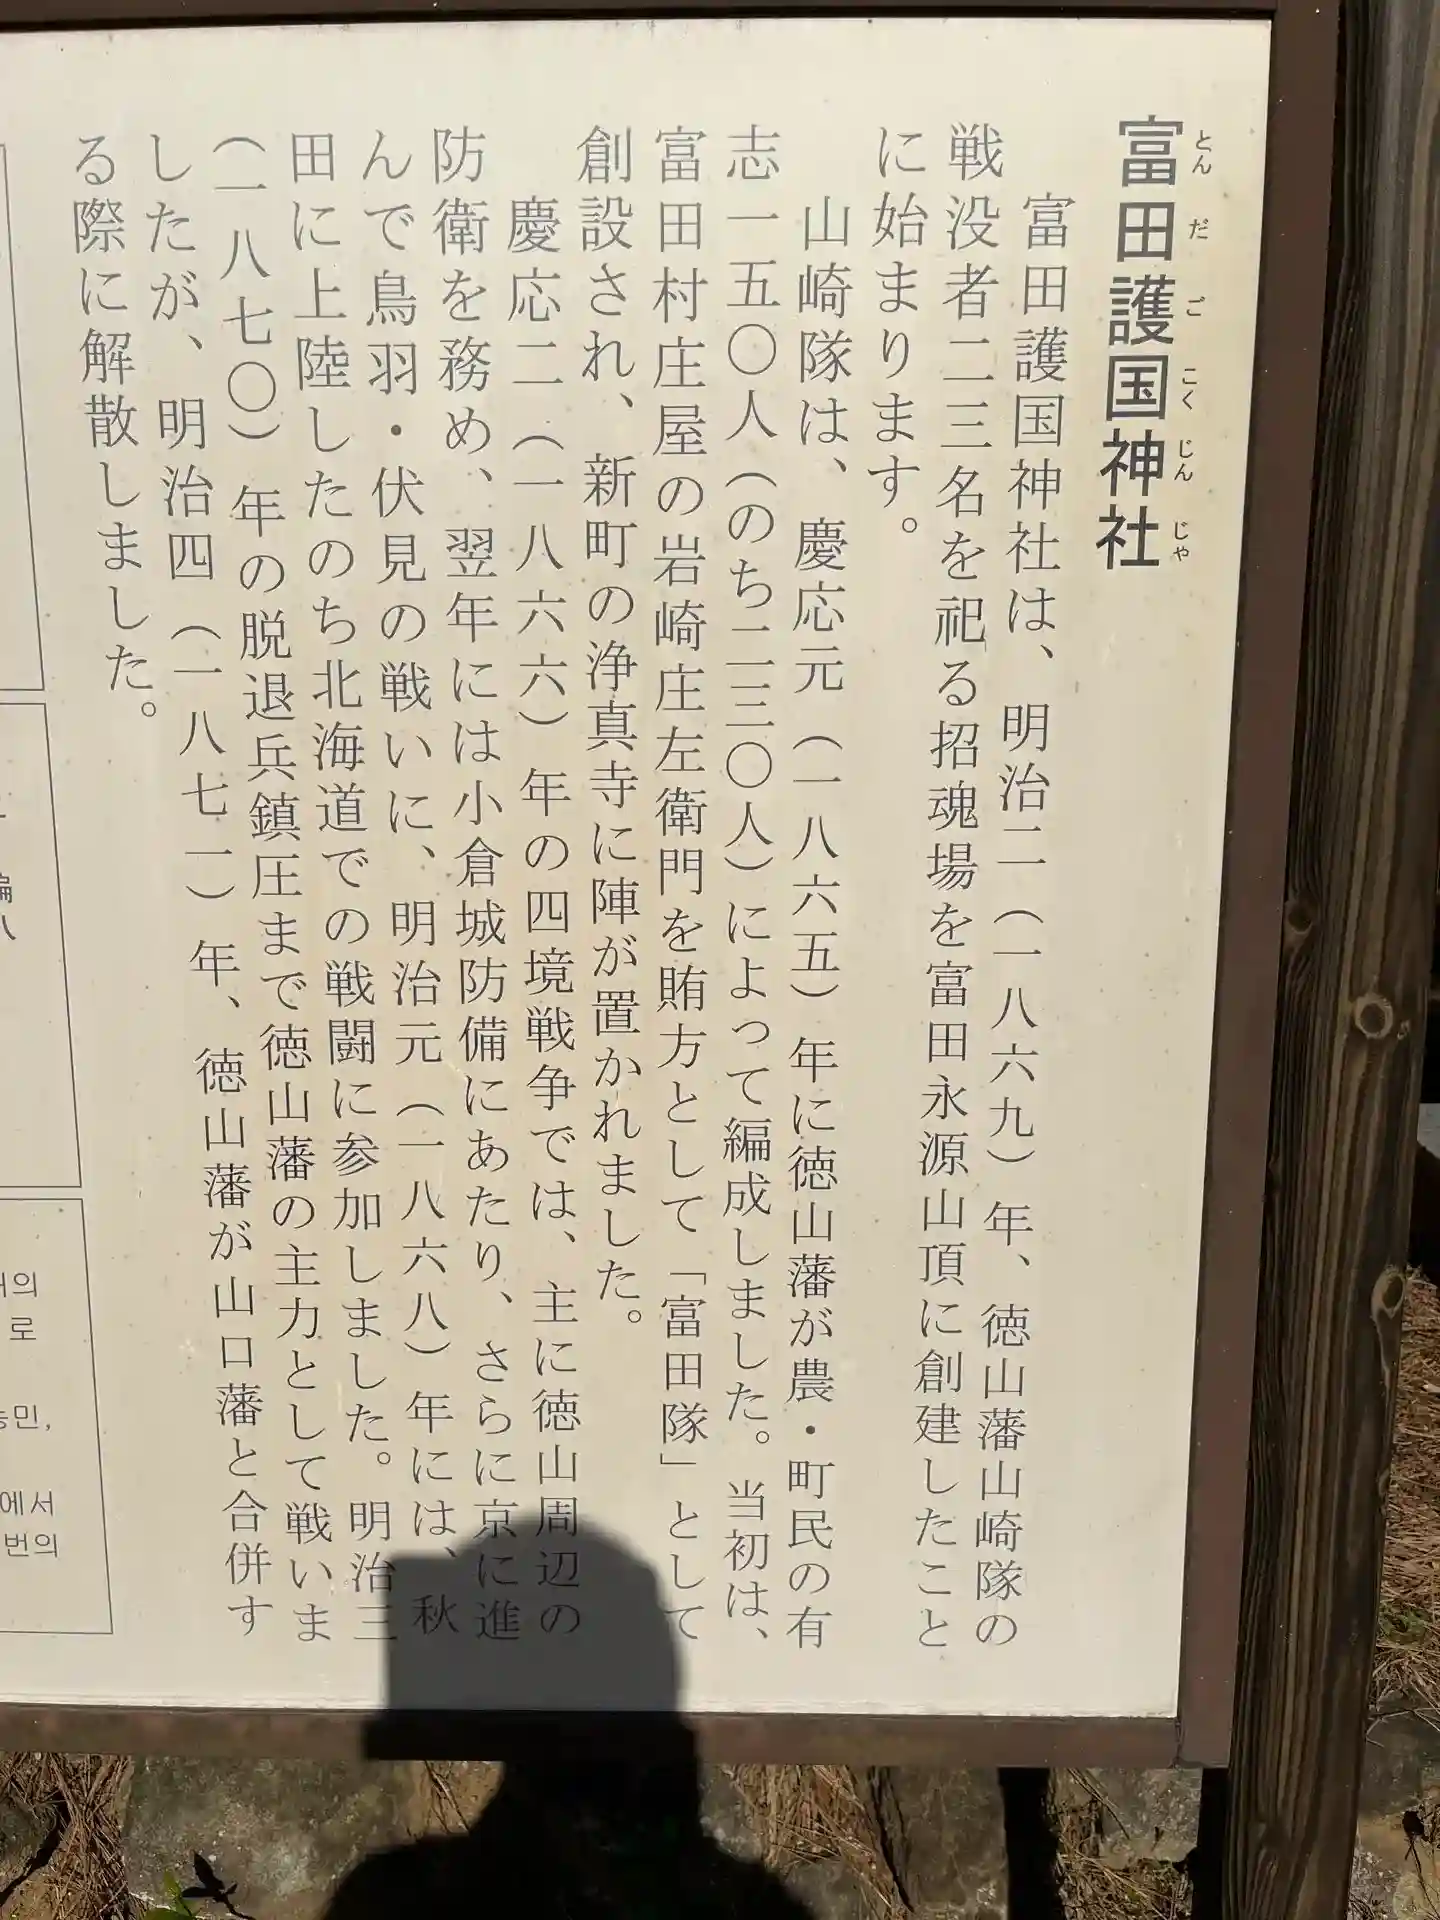 富田護国神社
とんだごこくじんじゃ
富田護国神社は、明治二（一八六九）年、徳山藩山崎隊の
戦没者二三名を祀る招魂場を富田永源山頂に創建したこと
に始まります。
山崎隊は、慶応元（一八六五）年に徳山藩が農・町民の有
志一五〇人（のち二三〇人）によって編成しました。当初は、
富田村庄屋の岩崎庄左衛門を賄方として「富田隊」として
創設され、新町の浄真寺に陣が置かれました。
慶応二（一八六六）年の四境戦争では、主に徳山周辺の
防衛を務め、翌年には小倉城防備にあたり、さらに京に進
んで鳥羽・伏見の戦いに、明治元（一八六八）年には、秋
田に上陸したのち北海道での戦闘に参加しました。明治三
（一八七〇）年の脱退兵鎮圧まで徳山藩の主力として戦いま
したが、明治四（一八七一）年、徳山藩が山口藩と合併す
る際に解散しました。
의
로
민,
에서
번의